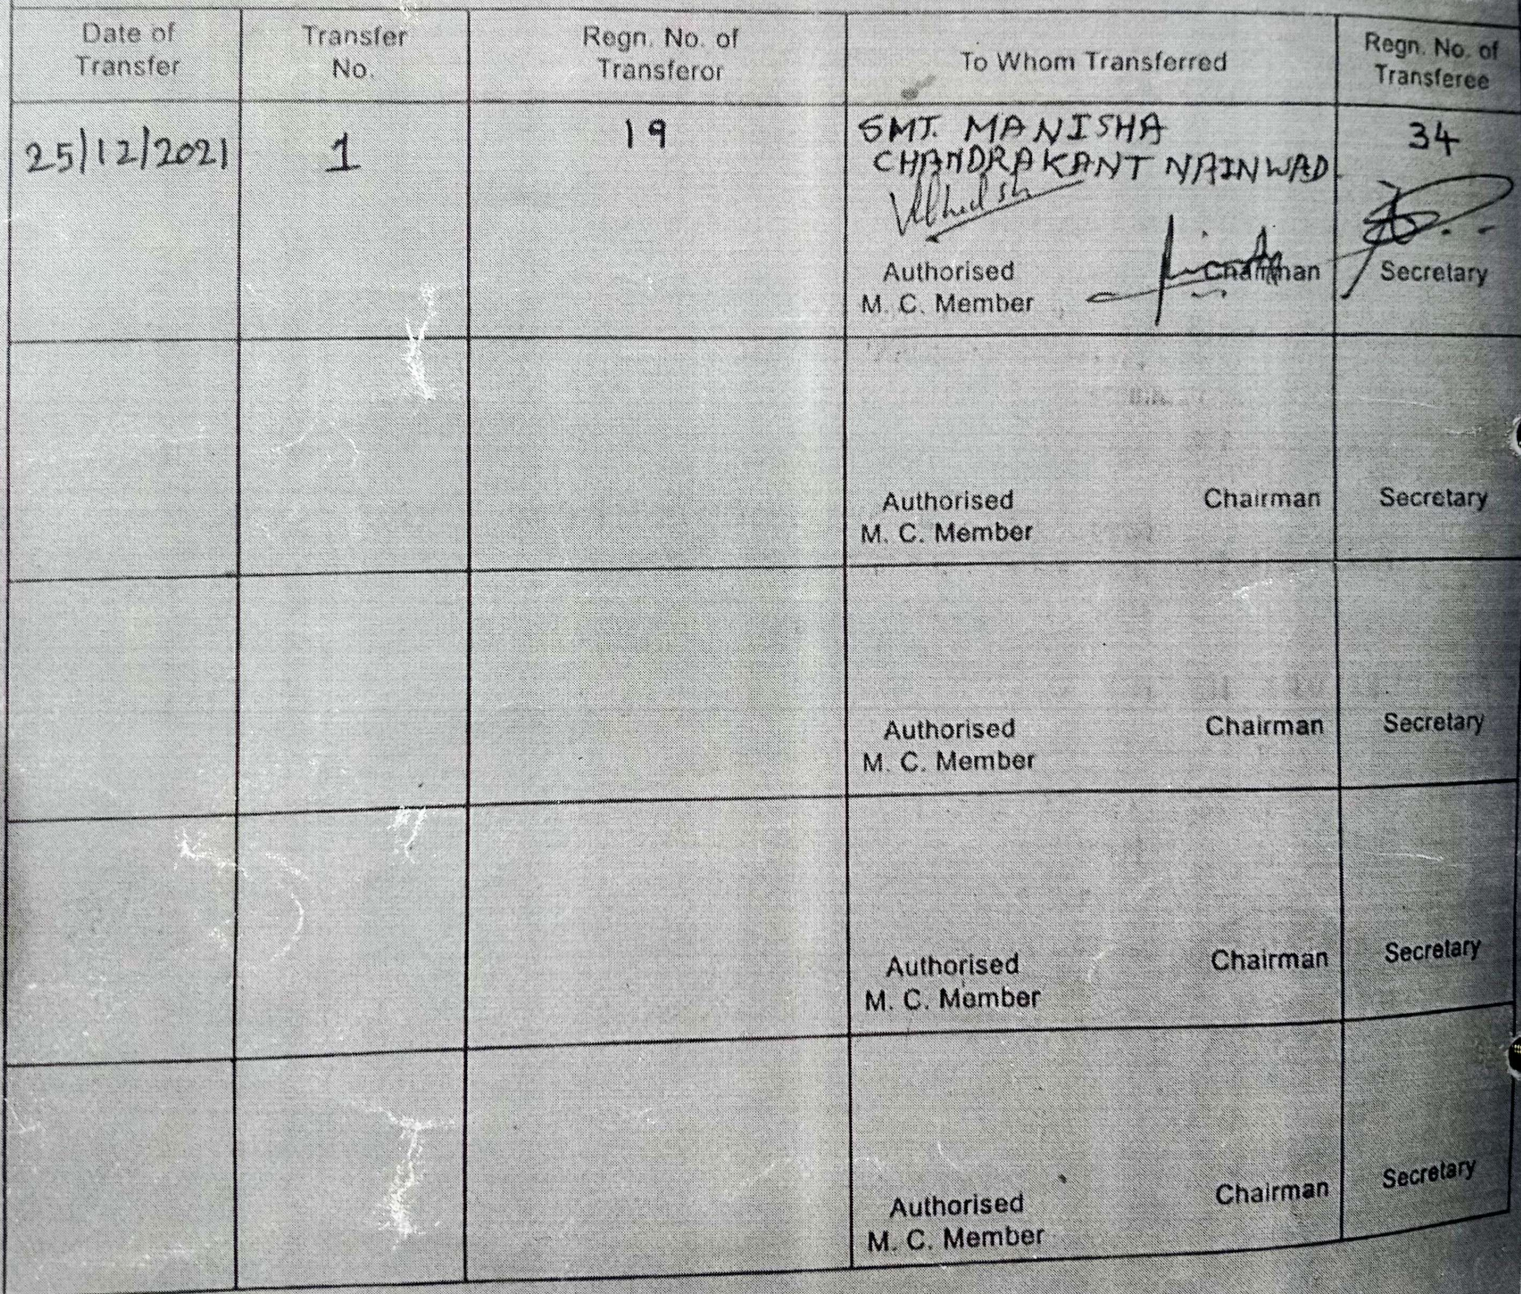 Date of Transfer
Transfer No.
Regn. No. of Transferor
To Whom Transferred
Regn. No. of Transferee
25/12/2021
1
19
SMT. MANISHA
CHANDRAKANT NAINWAD
34
Authorised
M. C. Member
Chairman
Secretary
Authorised
M. C. Member
Chairman
Secretary
Authorised
M. C. Member
Chairman
Secretary
Authorised
M. C. Member
Chairman
Secretary
Authorised
M. C. Member
Chairman
Secretary